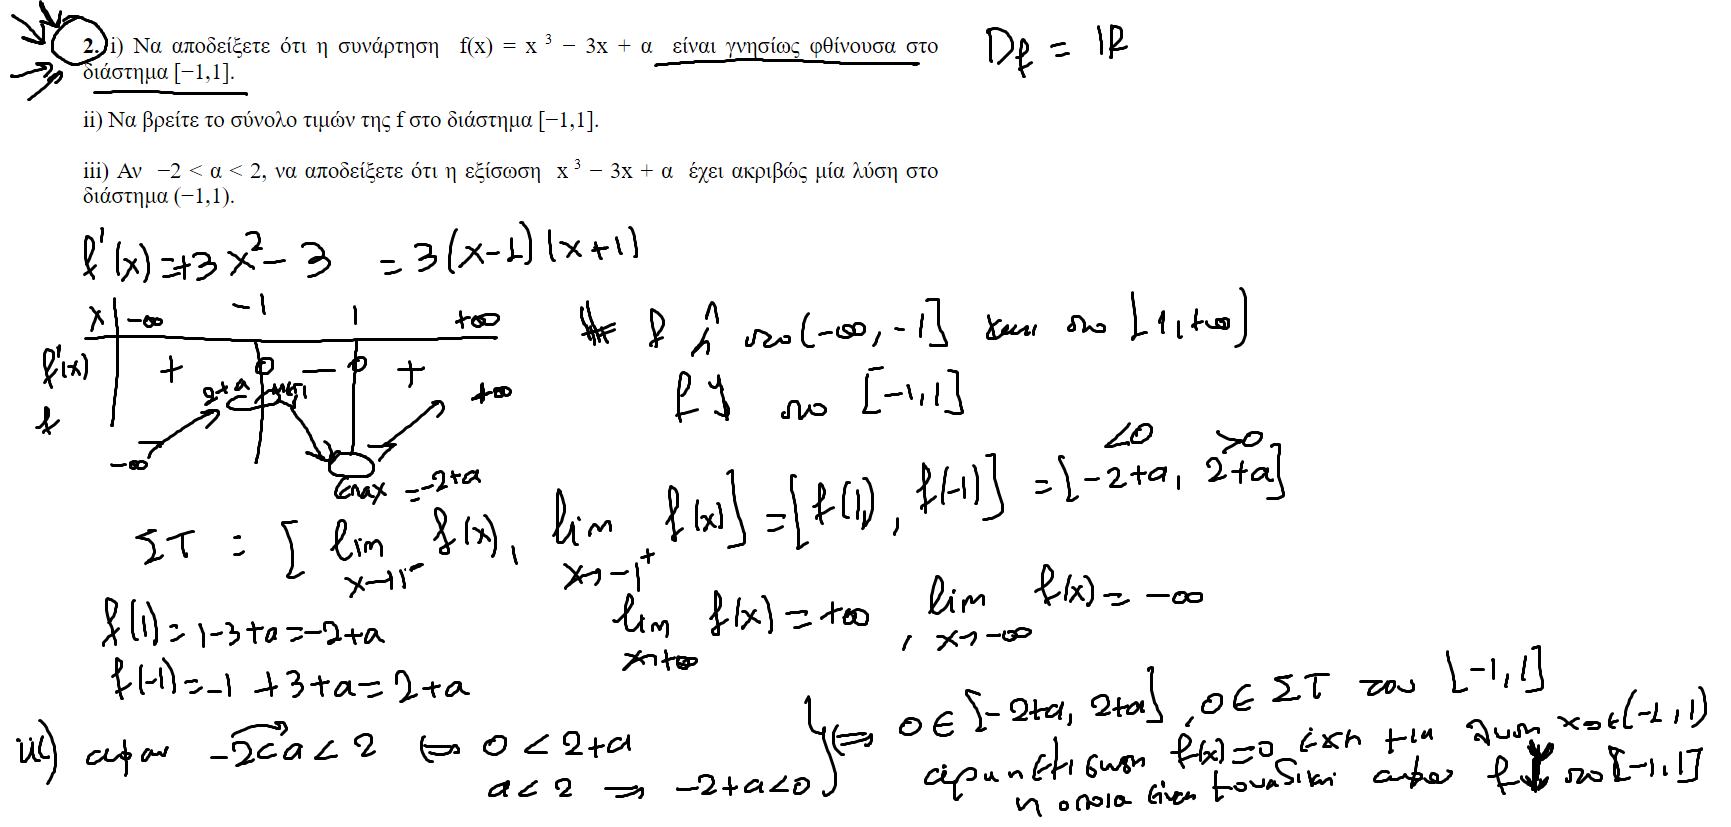 2. i) Να αποδείξετε ότι η συνάρτηση f(x) = x ³ − 3x + α είναι γνησίως φθίνουσα στο
διάστημα [−1,1].
D_f = ℝ
ii) Να βρείτε το σύνολο τιμών της f στο διάστημα [−1,1].
iii) Αν −2 < α < 2, να αποδείξετε ότι η εξίσωση x ³ − 3x + α έχει ακριβώς μία λύση στο
διάστημα (−1,1).
f'(x) = +3x² − 3 = 3(x−1)(x+1)
x | −∞ −1 1 +∞
f'(x) + 0 − 0 +
f −∞ 2+a +∞
= −2+a
f ↗ στο (−∞, −1] και στο [1, +∞)
f ↘ στο [−1,1]
ΣΤ = [lim x→1⁻ f(x), lim x→−1⁺ f(x)] = [f(1), f(−1)] = [−2+a, 2+a]
<0 >0
f(1) = 1−3+a = −2+a
lim x→+∞ f(x) = +∞, lim x→−∞ f(x) = −∞
f(−1) = −1+3+a = 2+a
iii) αφου −2<a<2 ⇔ 0<2+a
a<2 ⇒ −2+a<0
⇔ 0 ∈ [−2+a, 2+a], 0 ∈ ΣΤ του [−1,1]
άρα η εξίσωση f(x)=0 έχει μια λυση x₀∈(−1,1)
η οποία είναι μοναδική αφου f ↓ στο [−1,1]